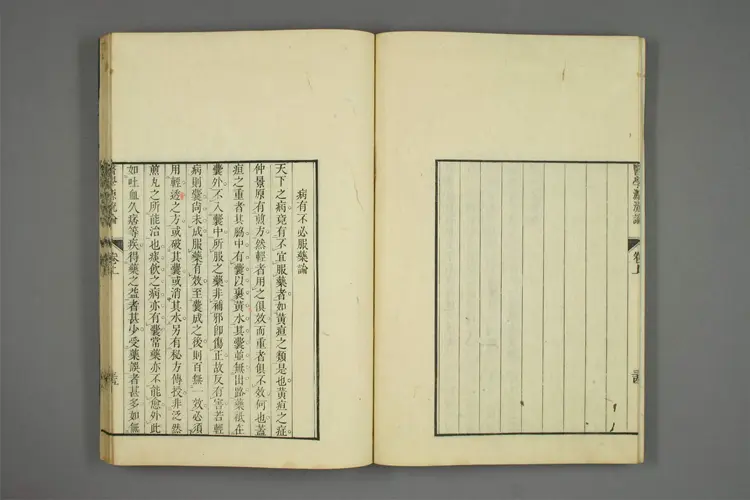 病有不必服藥論
天下之病竟有不宜服藥者如黃疸之類是也黃疸之症
仲景原有煎方然輕者用之俱效而重者俱不效何也蓋
疸之重者其脇中有囊以裹黃水其囊並無出路藥祇在
囊外不入囊中所服之藥非補邪卽傷正故反有害若輕
病則囊尚未成服藥有效至囊成之後則百無一效必須
用輕透之方或破其囊或消其水另有秘方傳授非泛然
煎丸之所能治也痰飲之病亦有囊常藥亦不能愈外此
如吐血久痞等疾得藥之益者甚少受藥誤者甚多如無
醫學源流論
卷上
醫學源流論
卷上